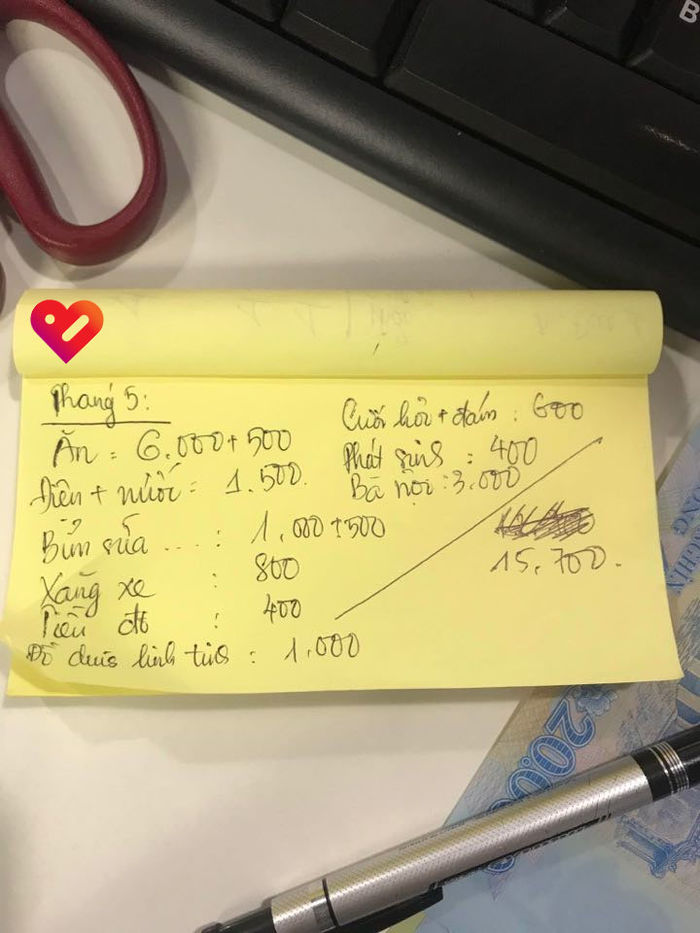 Tháng 5:
Ăn = 6.000 + 500
Điện + nước = 1.500.
Bỉm sữa ... : 1.000 + 500
Xăng xe : 800
Tiền đt : 400
Đồ dùng linh tinh : 1.000
Cưới hỏi + đám : 600
Phát sinh : 400
Bà nội : 3.000
15.700.
B